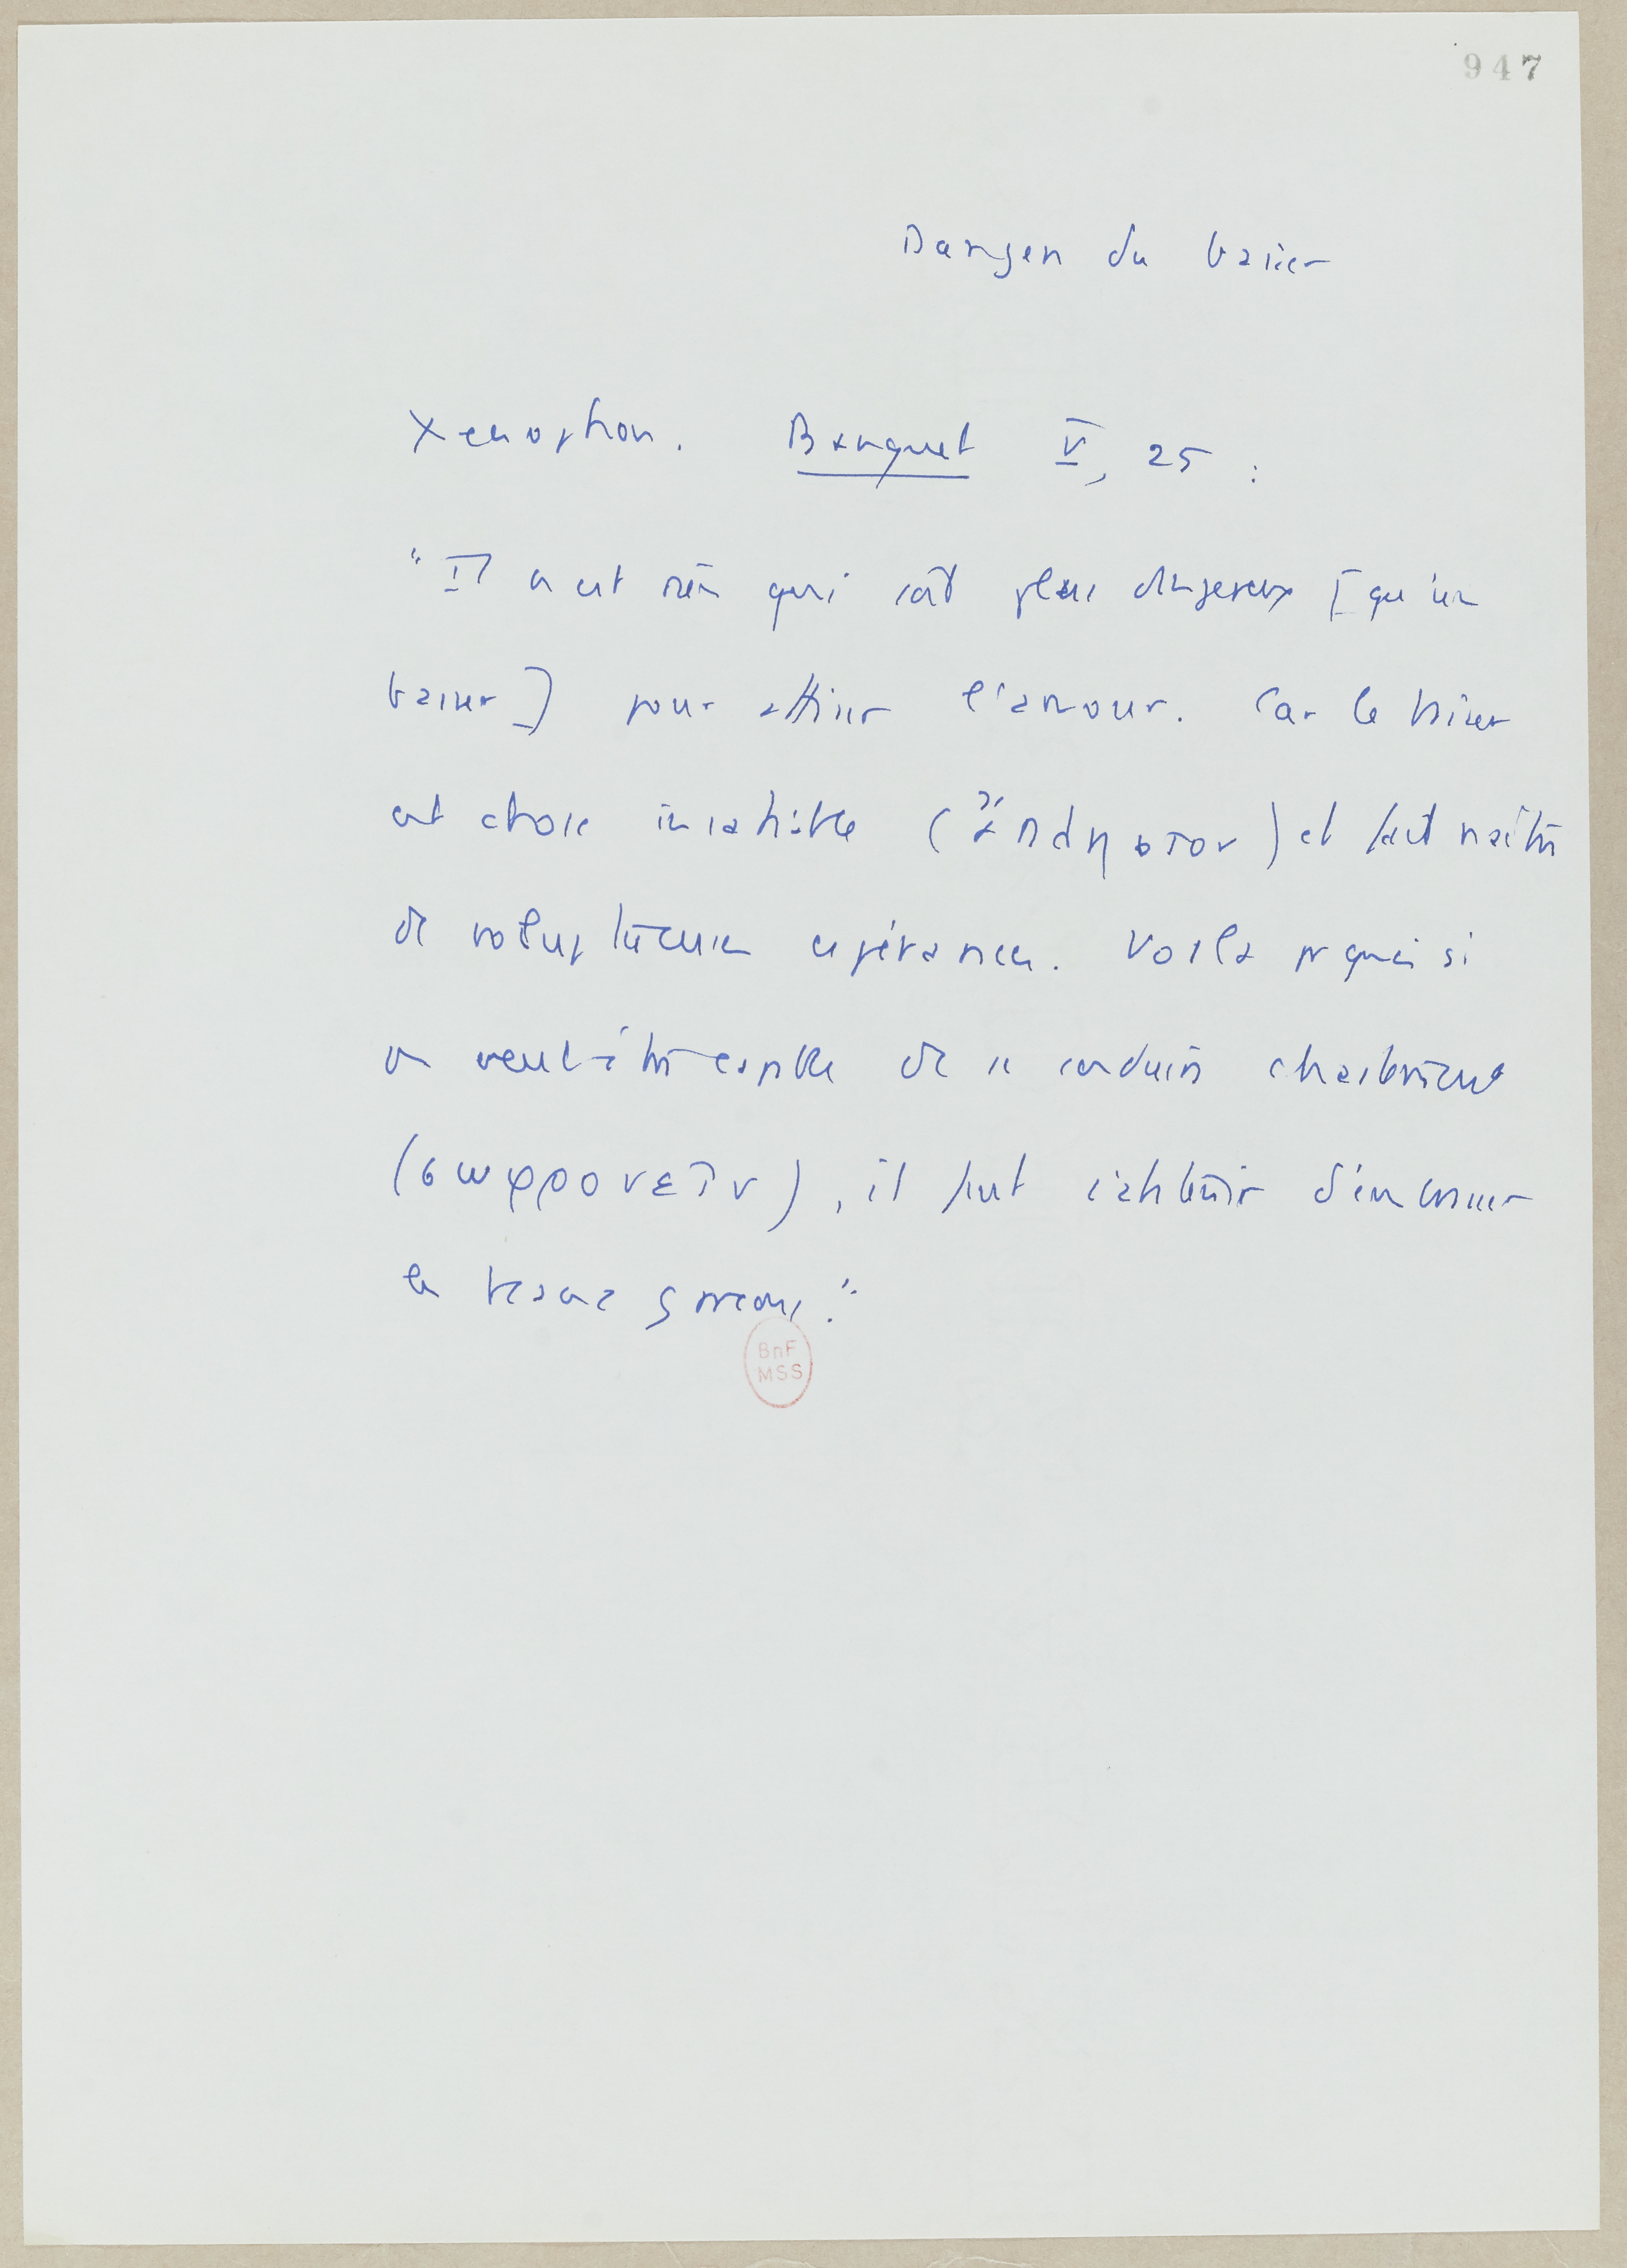 947
Danger du baiser
Xenophon. Banquet V, 25 :
"Il n'est rien qui soit plus dangereux [qu'un
baiser] pour attiser l'amour. Car le baiser
est chose insatiable (ἄπληστον) et fait naître
de voluptueuses espérances. Voilà pquoi si
on veut être capable de se conduire chastement
(σωφρονεῖν), il faut s'abstenir d'embrasser
les beaux garçons."
BnF
MSS